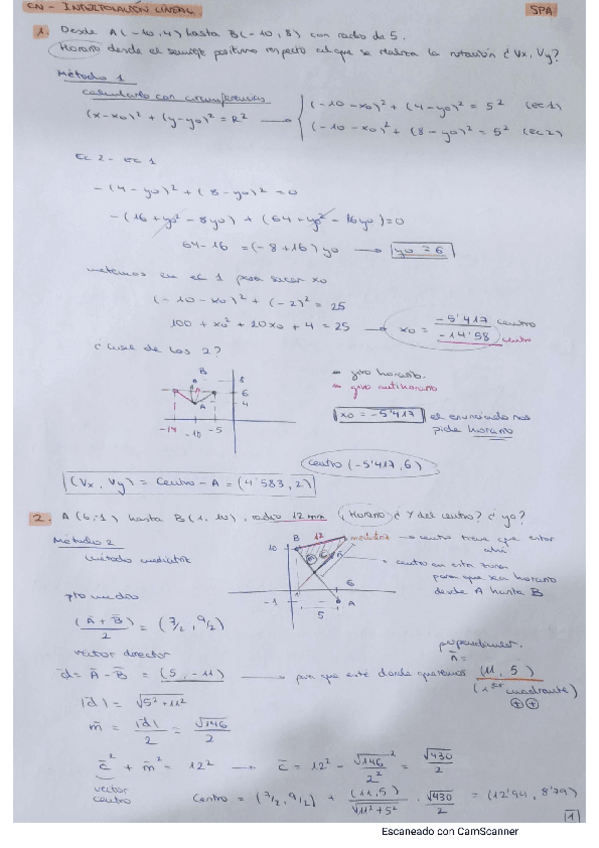 CN - INTERPOLACIÓN LINEAL
SPA
1. Desde A(-10,4) hasta B(-10,8) con radio de 5.
Horario desde el semieje positivo respecto al que se realiza la rotación ¿Vx, Vy?
Método 1
calcularlo con circunferencias
(x-x0)² + (y-y0)² = R² → (-10-x0)² + (4-y0)² = 5² (ec1)
(-10-x0)² + (8-y0)² = 5² (ec2)
Ec 2 - ec 1
-(4-y0)² + (8-y0)² = 0
-(16 + y0² - 8y0) + (64 + y0² - 16y0) = 0
64-16 = (-8+16) y0 → y0 = 6
metemos en ec 1 para sacar x0
(-10-x0)² + (-2)² = 25
100 + x0² + 20x0 + 4 = 25 → x0 = -5'417 centro
-14'58 centro
¿cual de las 2?
B
A
8
6
4
-14 -10 -5
→ giro horario.
→ giro antihorario
x0 = -5'417 el enunciado nos
pide horario
centro (-5'417, 6)
(Vx, Vy) = Centro - A = (4'583, 2)
2. A(6,-1) hasta B(1,10), radio 12 mm, Horario ¿Y del centro? ¿y0?
Método 2
método mediatriz
B 12 mediatriz → centro tiene que estar
ahí
10
6
-1
5
A
→ centro en esta zona
para que sea horario
desde A hasta B
pto medio
(Ā + B̄)/2 = (7/2, 9/2)
vector director
d̄ = Ā - B̄ = (5, -11) → para que esté donde queremos
perpendicular.
n̄ = (11, 5)
(1er cuadrante)
⊕⊕
|d̄| = √5²+11²
m̄ = |d̄|/2 = √146/2
c̄² + m̄² = 12² → c̄ = 12² - √146²/2² = √430/2
vector
centro
Centro = (7/2, 9/2) + (11,5)/√11²+5² · √430/2 = (12'94, 8'79)
1
Escaneado con CamScanner